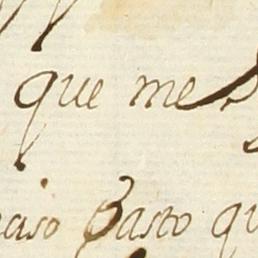 que me
ciso Gasto qu